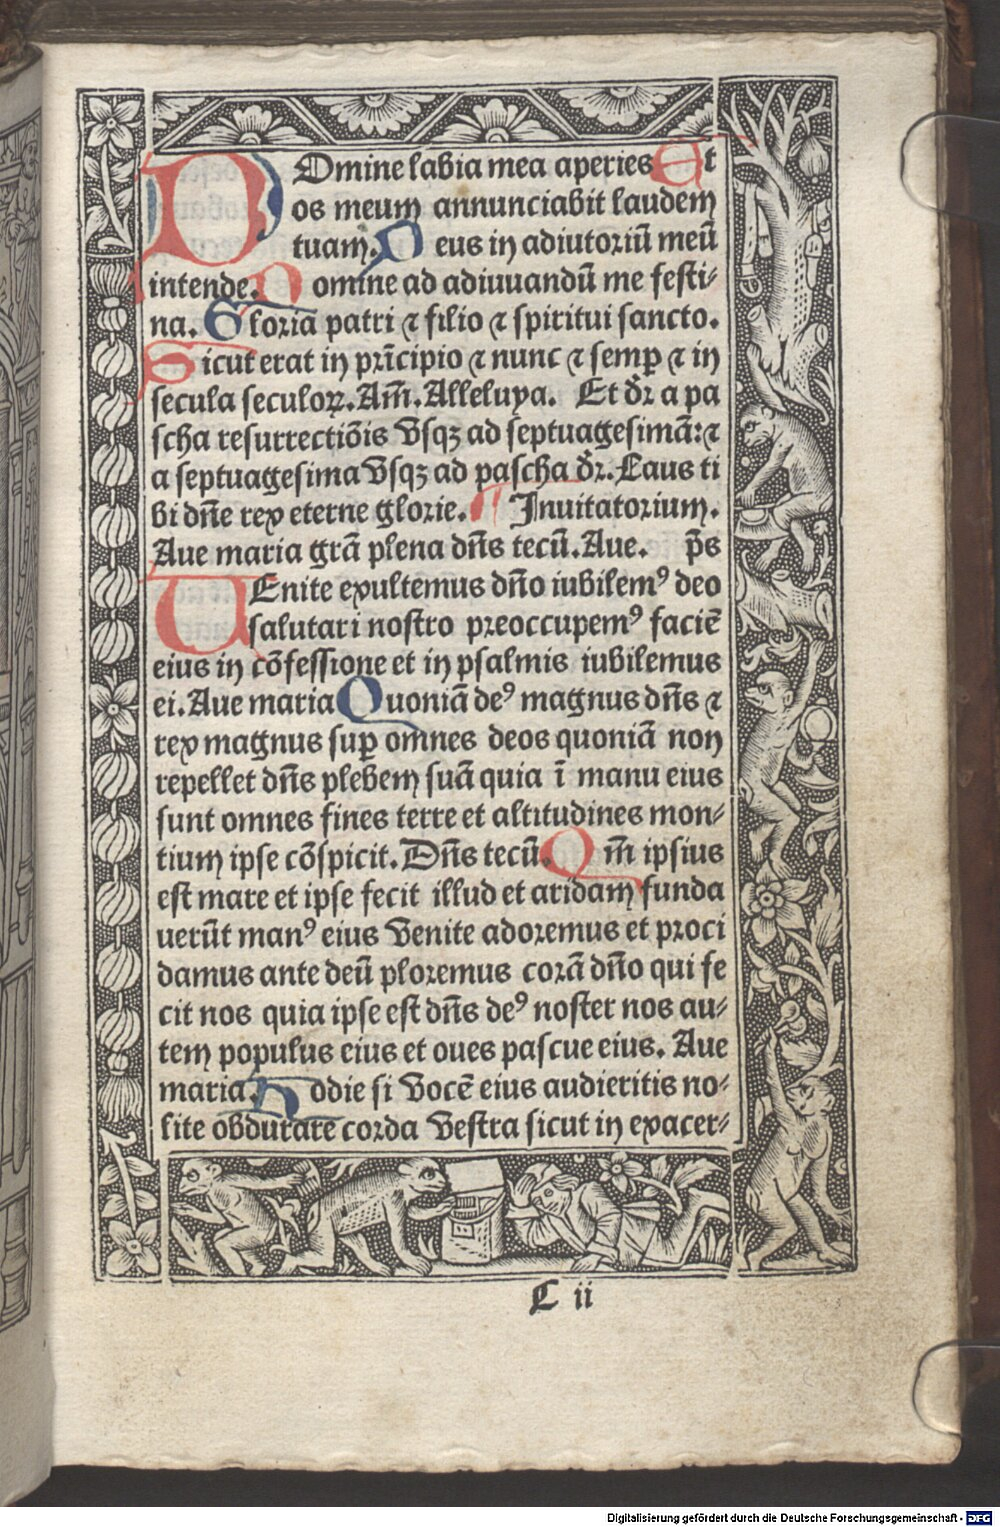 DOmine labia mea aperies Et
os meum annunciabit laudem
tuam. Deus in adiutoriū meū
intende. Domine ad adiuuandū me festi-
na. Gloria patri ⁊ filio ⁊ spiritui sancto.
Sicut erat in prīcipio ⁊ nunc ⁊ semꝑ ⁊ in
secula seculoꝝ. Am̄. Alleluya. Et dr̄ a pa
scha resurrectiōis vsqꝫ ad septuagesimā: ⁊
a septuagesima vsqꝫ ad pascha dr̄. Laus ti
bi dn̄e rex eterne glorie. ¶ Inuitatorium.
Aue maria grā plena dn̄s tecū. Aue. p̄s
VEnite exultemus dn̄o iubilemꝰ deo
salutari nostro preoccupemꝰ faciē
eius in cōfessione et in psalmis iubilemus
ei. Aue maria Quoniā deꝰ magnus dn̄s ⁊
rex magnus suꝑ omnes deos quoniā non
repellet dn̄s plebem suā quia ī manu eius
sunt omnes fines terre et altitudines mon-
tium ipse cōspicit. Dn̄s tecū. Qm̄ ipsius
est mare et ipse fecit illud et aridam funda
uerūt manꝰ eius Venite adoremus et proci
damus ante deū ploremus corā dn̄o qui fe
cit nos quia ipse est dn̄s deꝰ noster nos au-
tem populus eius et oues pascue eius. Aue
maria. Hodie si vocē eius audieritis no-
lite obdurare corda vestra sicut in exacer-
C ii
Digitalisierung gefördert durch die Deutsche Forschungsgemeinschaft - DFG